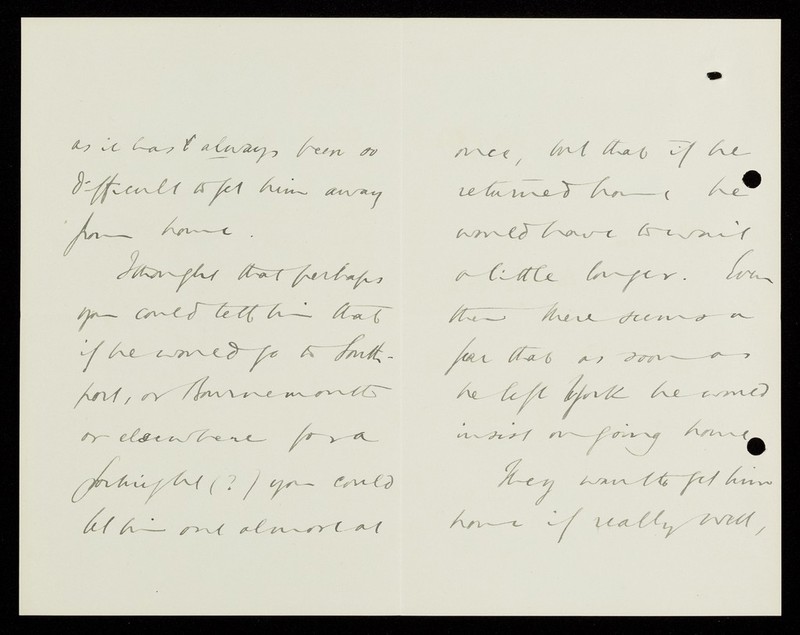 as it has always been so
difficult to get him away
from home.
I thought that perhaps
you could tell him that
if he would go to South-
port, or Bournemouth
or elsewhere for a
fortnight (?) you could
let him out almost at
once, but that if he
returned home he
would have to wait
a little longer. Even
then there seems a
fear that as soon as
he left York he would
insist on going home
They want to get him
home if really well,